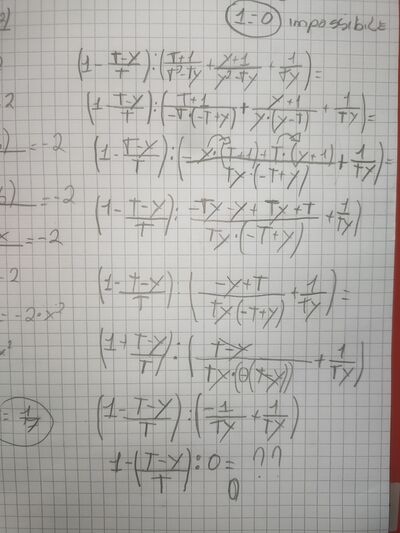 1=0 impossibile
(1 - T-y/T) : (T+1/T²-Ty + y+1/y²-Ty + 1/Ty) =
-2
(1 - T-y/T) : (T+1/-T·(-T+y) + y+1/y·(y-T) + 1/Ty) =
= -2
(1 - T-y/T) : (-y·(T+1)+T·(y+1)/Ty·(-T+y) + 1/Ty) =
= -2
(1 - T-y/T) : -Ty-y+Ty+T/Ty·(-T+y) + 1/Ty)
x = -2
-2
(1 - T-y/T) : (-y+T/Ty(-T+y) + 1/Ty) =
= -2·x²
(1 + T-y/T) : (T-y/Ty·(-(T-y)) + 1/Ty)
(1 - T-y/T) : (-1/Ty + 1/Ty)
1 - (T-y/T) : 0 = ??
0